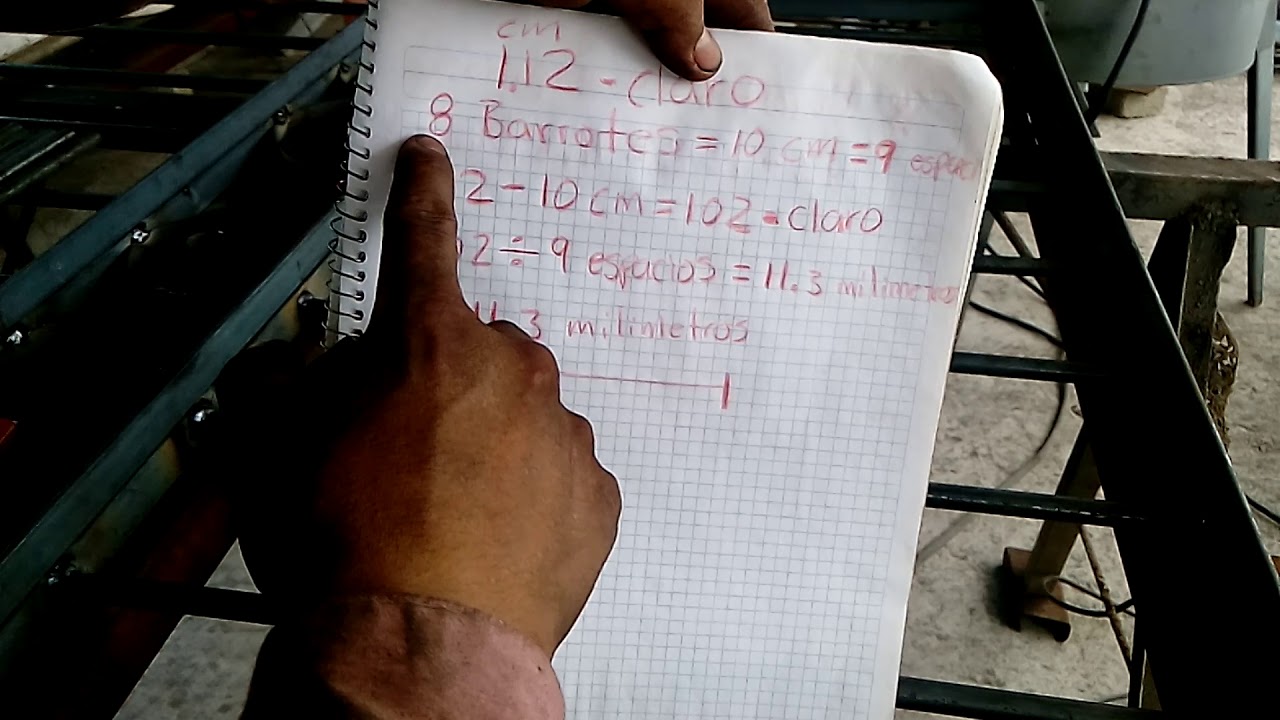 cm
1.12 - claro
8 Barrotes = 10 cm = 9
2 - 10 cm = 102 - claro
2 ÷ 9 espacios = 11.3 milimetros
11.3 milimetros